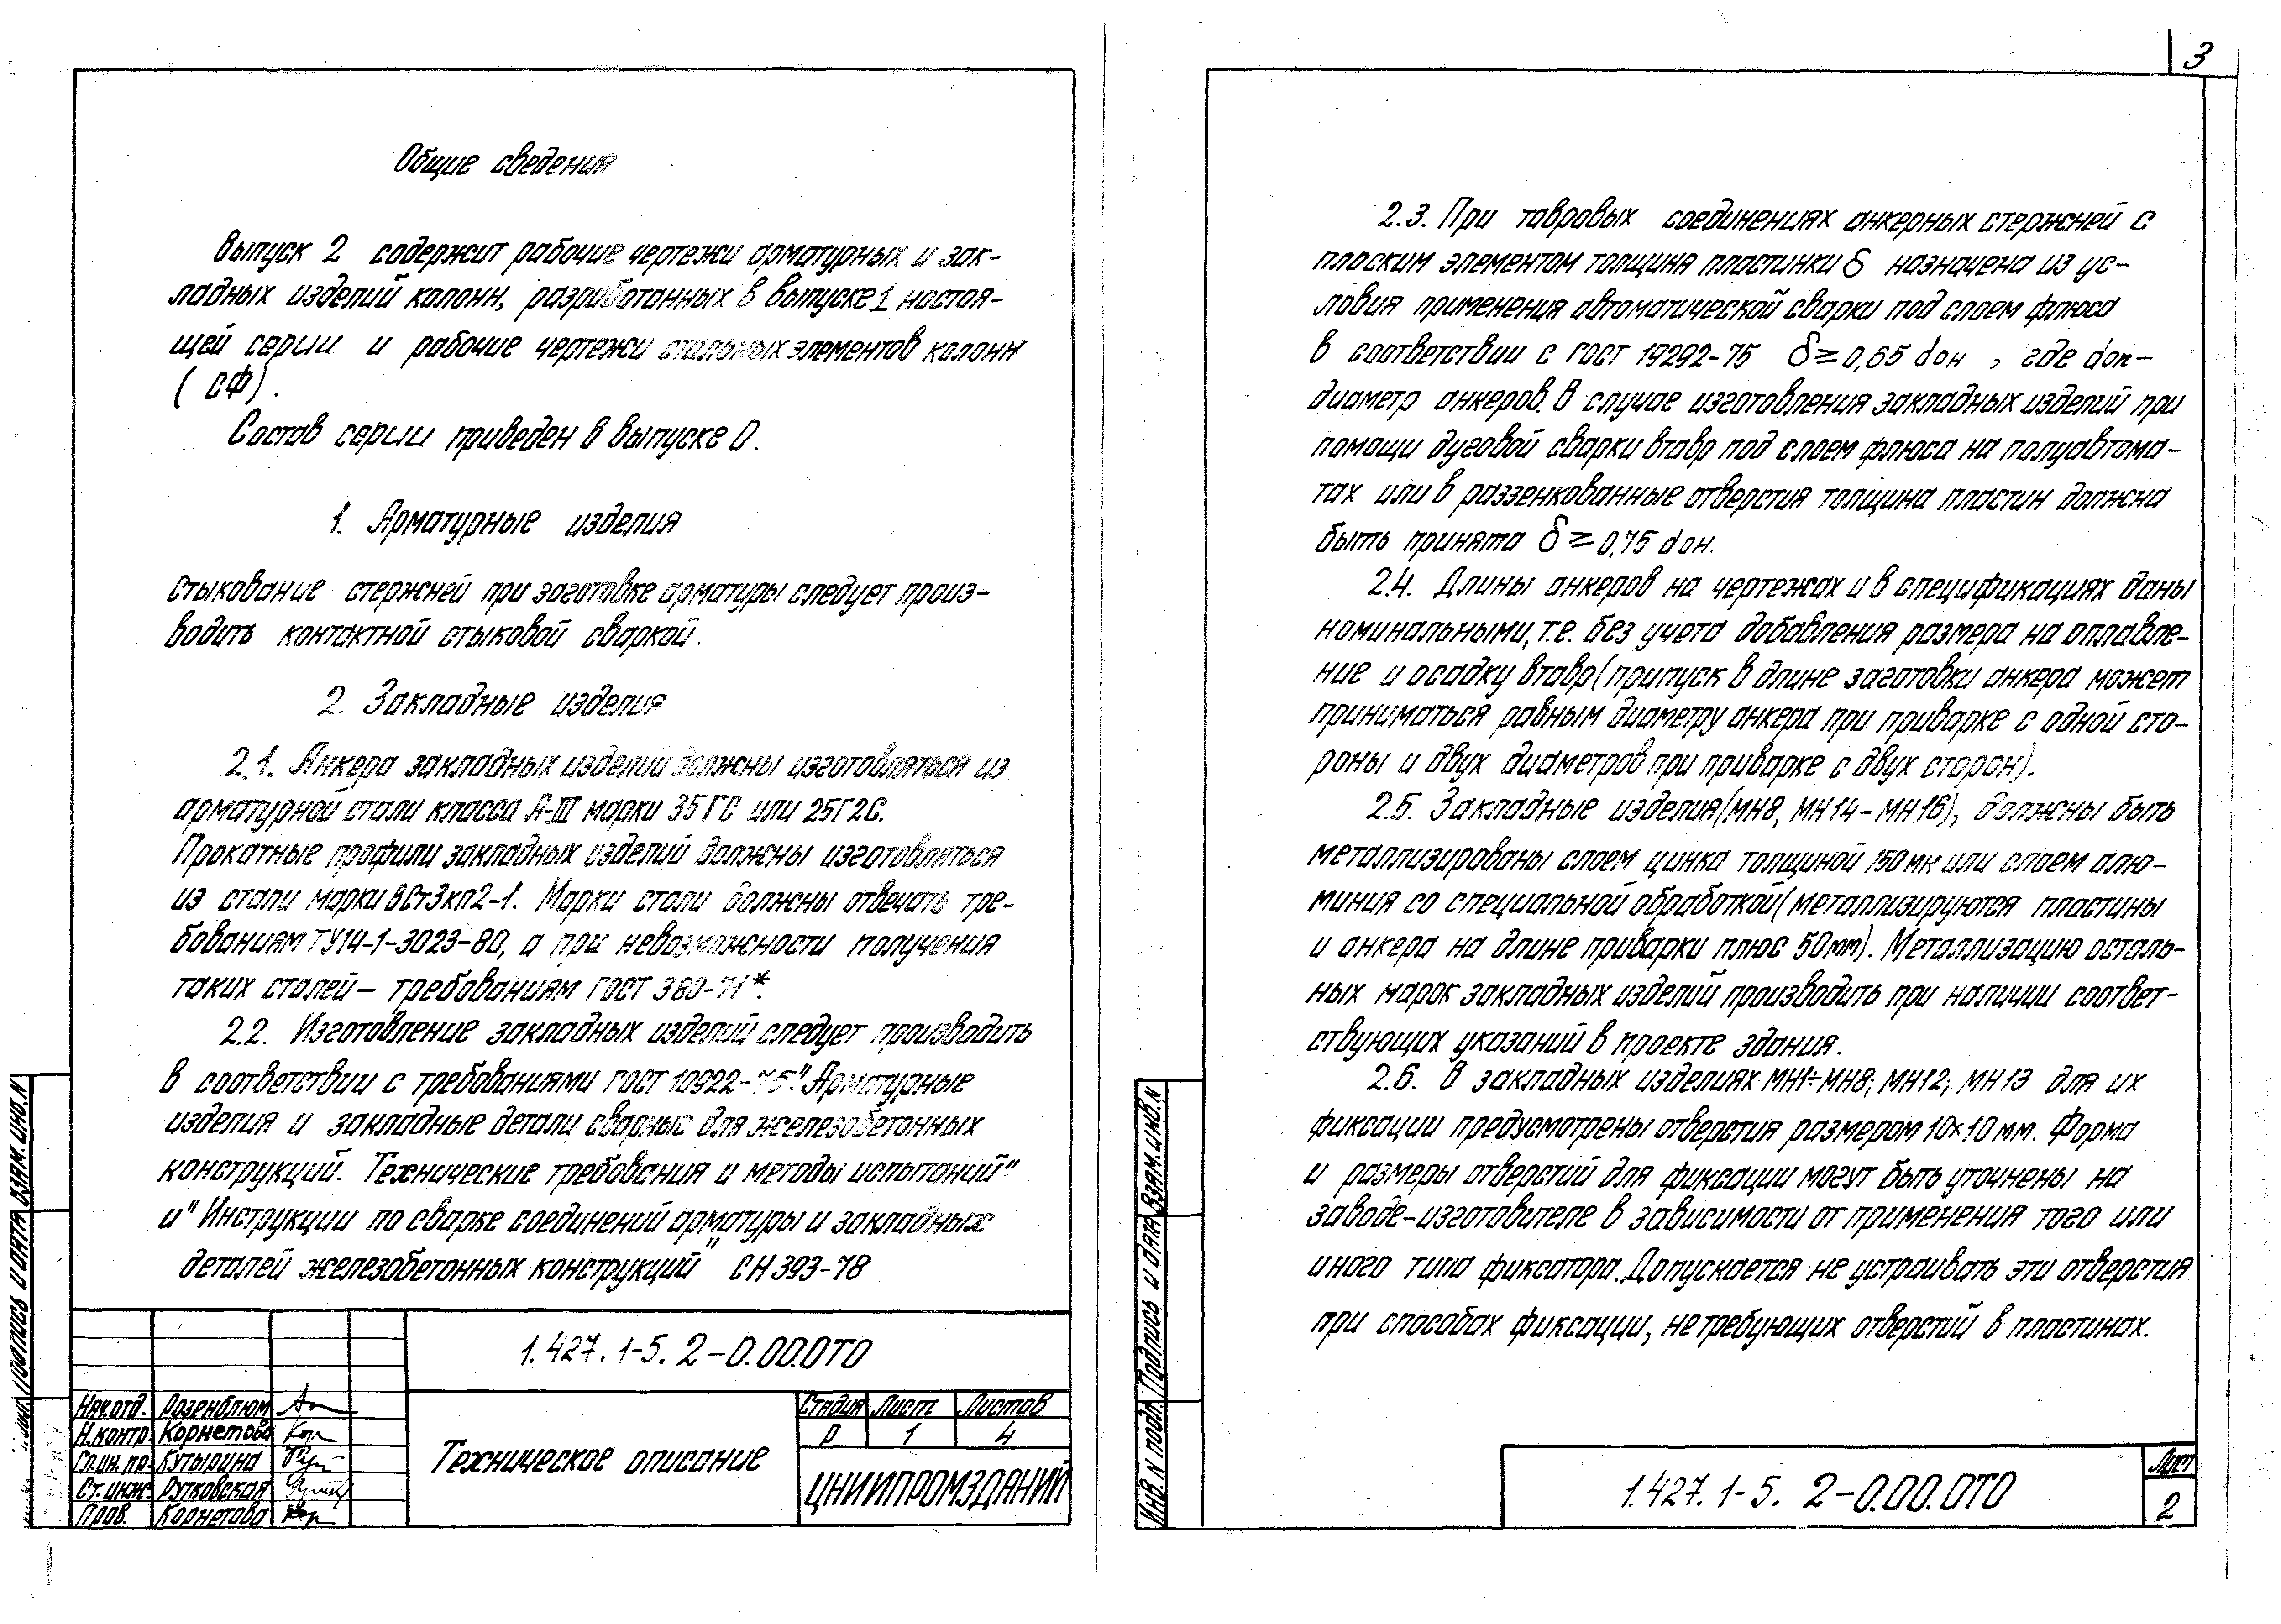 Общие сведения
Выпуск 2 содержит рабочие чертежи арматурных и зак-
ладных изделий колонн, разработанных в выпуске 1 настоя-
щей серии и рабочие чертежи стальных элементов колонн
(СФ).
Состав серии приведен в выпуске 0.
1. Арматурные изделия
Стыкование стержней при заготовке арматуры следует произ-
водить контактной стыковой сваркой.
2. Закладные изделия
2.1. Анкера закладных изделий должны изготовляться из
арматурной стали класса А-III марки 35ГС или 25Г2С.
Прокатные профили закладных изделий должны изготовляться
из стали марки ВСт3кп2-1. Марки стали должны отвечать тре-
бованиям ТУ14-1-3023-80, а при невозможности получения
таких сталей — требованиям ГОСТ 380-71*.
2.2. Изготовление закладных изделий следует производить
в соответствии с требованиями ГОСТ 10922-75 "Арматурные
изделия и закладные детали сварные для железобетонных
конструкций. Технические требования и методы испытаний"
и "Инструкции по сварке соединений арматуры и закладных
деталей железобетонных конструкций" СН 393-78
1.427.1-5.2-0.00.0ТО
Нач.отд. Розенблюм
Н.контр. Корнетова
Гл.ин.пр. Кутырина
Ст.инж. Рутковская
Пров. Корнетова
Техническое описание
Стадия Лист Листов
Р 1 4
ЦНИИПРОМЗДАНИЙ
Подпись и дата Взам.инв.N
3
2.3. При тавровых соединениях анкерных стержней с
плоским элементом толщина пластинки δ назначена из ус-
ловия применения автоматической сварки под слоем флюса
в соответствии с ГОСТ 19292-75 δ ≥ 0,65 dан , где dап-
диаметр анкеров. В случае изготовления закладных изделий при
помощи дуговой сварки втавр под слоем флюса на полуавтома-
тах или в раззенкованные отверстия толщина пластин должна
быть принята δ ≥ 0,75 dан.
2.4. Длины анкеров на чертежах и в спецификациях даны
номинальными, т.е. без учета добавления размера на оплавле-
ние и осадку втавр (припуск в длине заготовки анкера может
приниматься равным диаметру анкера при приварке с одной сто-
роны и двух диаметров при приварке с двух сторон).
2.5. Закладные изделия (МН8, МН14-МН16), должны быть
металлизированы слоем цинка толщиной 150 мк или слоем алю-
миния со специальной обработкой (металлизируются пластины
и анкера на длине приварки плюс 50мм). Металлизацию осталь-
ных марок закладных изделий производить при наличии соответ-
ствующих указаний в проекте здания.
2.6. В закладных изделиях МН1÷МН8; МН12; МН13 для их
фиксации предусмотрены отверстия размером 10×10 мм. Форма
и размеры отверстий для фиксации могут быть уточнены на
заводе-изготовителе в зависимости от применения того или
иного типа фиксатора. Допускается не устраивать эти отверстия
при способах фиксации, не требующих отверстий в пластинах.
Инв.N подл. Подпись и дата Взам.инв.N
1.427.1-5.2-0.00.0ТО
Лист
2